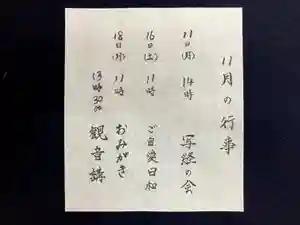 11月の行事
11日(月) 14時 写経の会
16日(土) 11時 ご自愛日和
18日(月) 11時 おみがき
13時30分 観音講